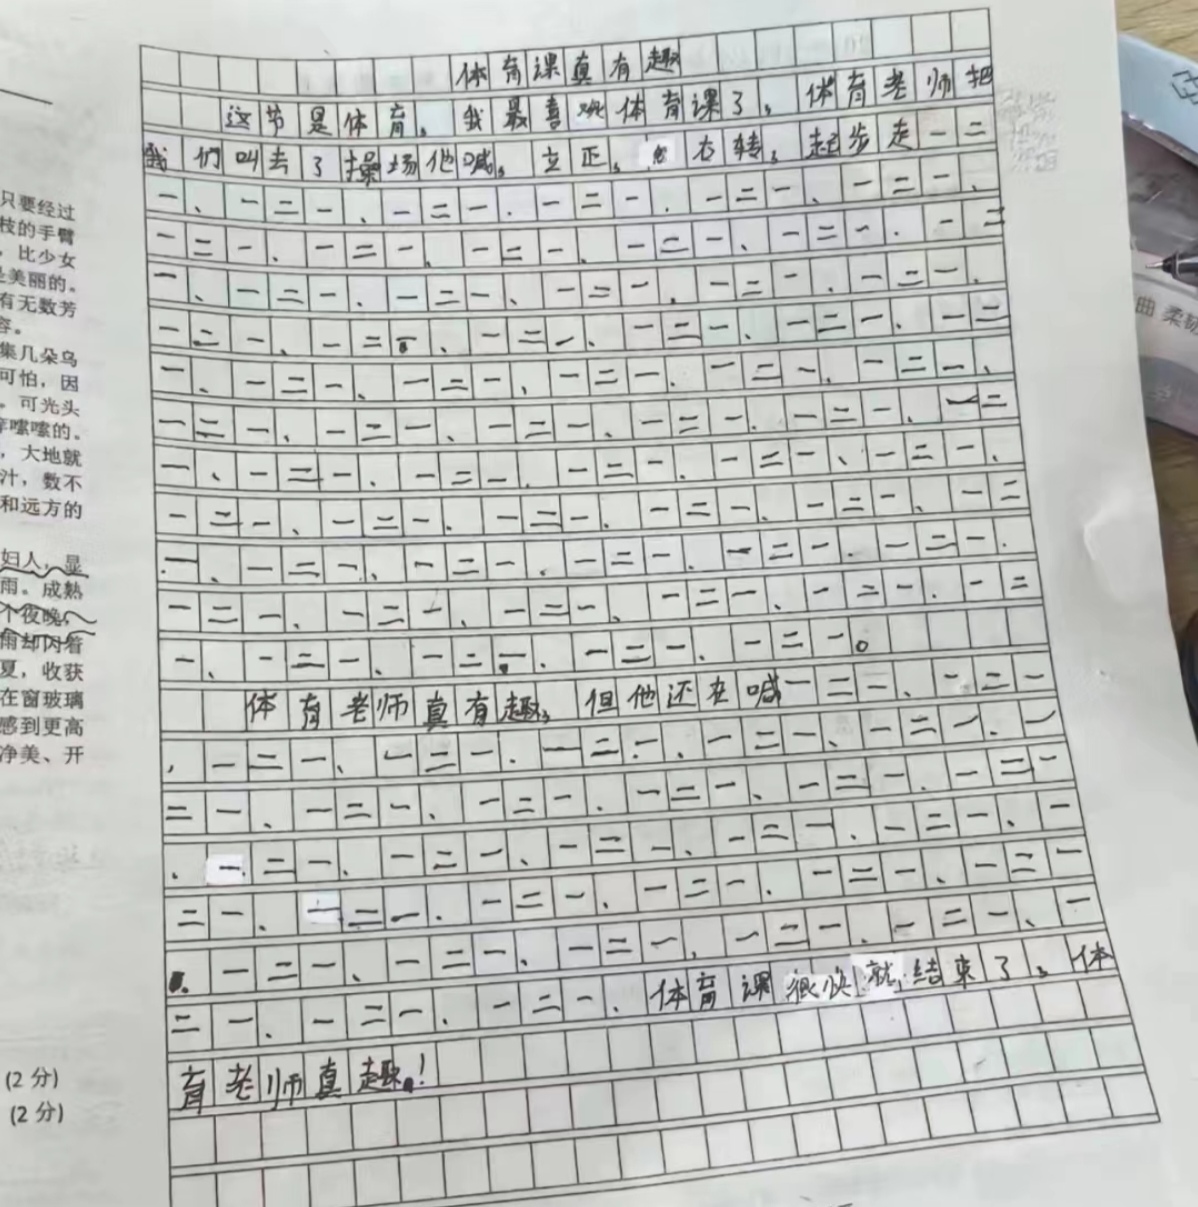 体育课真有趣
这节是体育,我最喜欢体育课了,体育老师把
我们叫去了操场他喊,立正,右转,起步走一二
一、一二一、一二一、一二一、一二一、一二一、
一二一、一二一、一二一、一二一、一二一、一二
一、一二一、一二一、一二一、一二一、一二一、
一二一、一二一、一二一、一二一、一二一、一二
一、一二一、一二一、一二一、一二一、一二一、
一二一、一二一、一二一、一二一、一二一、一二
一、一二一、一二一、一二一、一二一、一二一、
一二一、一二一、一二一、一二一、一二一、一二
一、一二一、一二一、一二一、一二一、一二一、
一二一、一二一、一二一、一二一、一二一、一二
一、一二一、一二一、一二一、一二一。
体育老师真有趣,但他还在喊一二一、一二一
、一二一、一二一、一二一、一二一、一二一、一
二一、一二一、一二一、一二一、一二一、一二一
、一二一、一二一、一二一、一二一、一二一、一
二一、一二一、一二一、一二一、一二一、一二一
、一二一、一二一、一二一、一二一、一二一、一
二一、一二一、一二一、体育课很快就结束了,体
育老师真趣!
只要经过
枝的手臂
,比少女
是美丽的。
有无数芳
容。
集几朵乌
可怕,因
。可光头
嗦嗦的。
,大地就
汁,数不
和远方的
妇人,显
雨。成熟
个夜晚,
雨却闪着
夏,收获
在窗玻璃
感到更高
净美、开
(2分)
(2分)
曲 柔韧